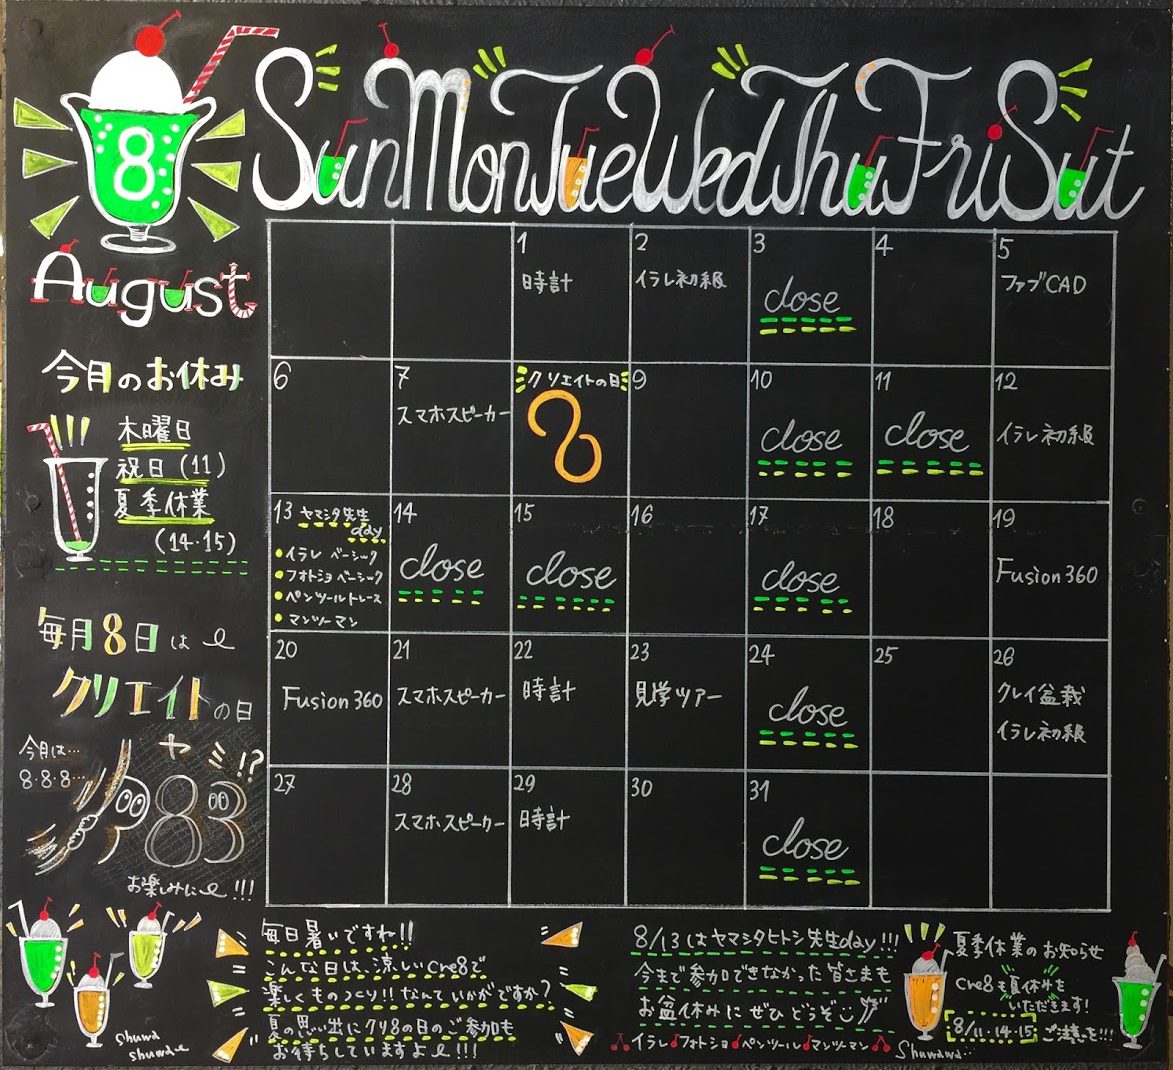 8
August
Sun Mon Tue Wed Thu Fri Sut
今月のお休み
木曜日
祝日(11)
夏季休業
(14・15)
毎月8日は
クリエイトの日
今月は…
8・8・8…
ヤミ!?
83
お楽しみに!!!
1
時計
2
イラレ初級
3
close
4
5
ファブCAD
6
7
スマホスピーカー
クリエイトの日
8
9
10
close
11
close
12
イラレ初級
13 ヤマシタ先生
day
・イラレ ベーシック
・フォトショ ベーシック
・ペンツールトレース
・マンツーマン
14
close
15
close
16
17
close
18
19
Fusion360
20
Fusion360
21
スマホスピーカー
22
時計
23
見学ツアー
24
close
25
26
クレイ盆栽
イラレ初級
27
28
スマホスピーカー
29
時計
30
31
close
毎日暑いですね!!
こんな日は、涼しいcre8で
楽しくものつくり!!なんていかがですか?
夏の思い出にクリ8の日のご参加も
お待ちしていますよ!!!
8/13はヤマシタヒトシ先生day!!!
今まで参加できなかった皆さまも
お盆休みにぜひどうぞ
イラレ フォトショ ペンツール マンツーマン
夏季休業のお知らせ
cre8も夏休みを
いただきます!
8/11・14・15 ご注意を!!!
shuwa
shuwa
Shuwawa…